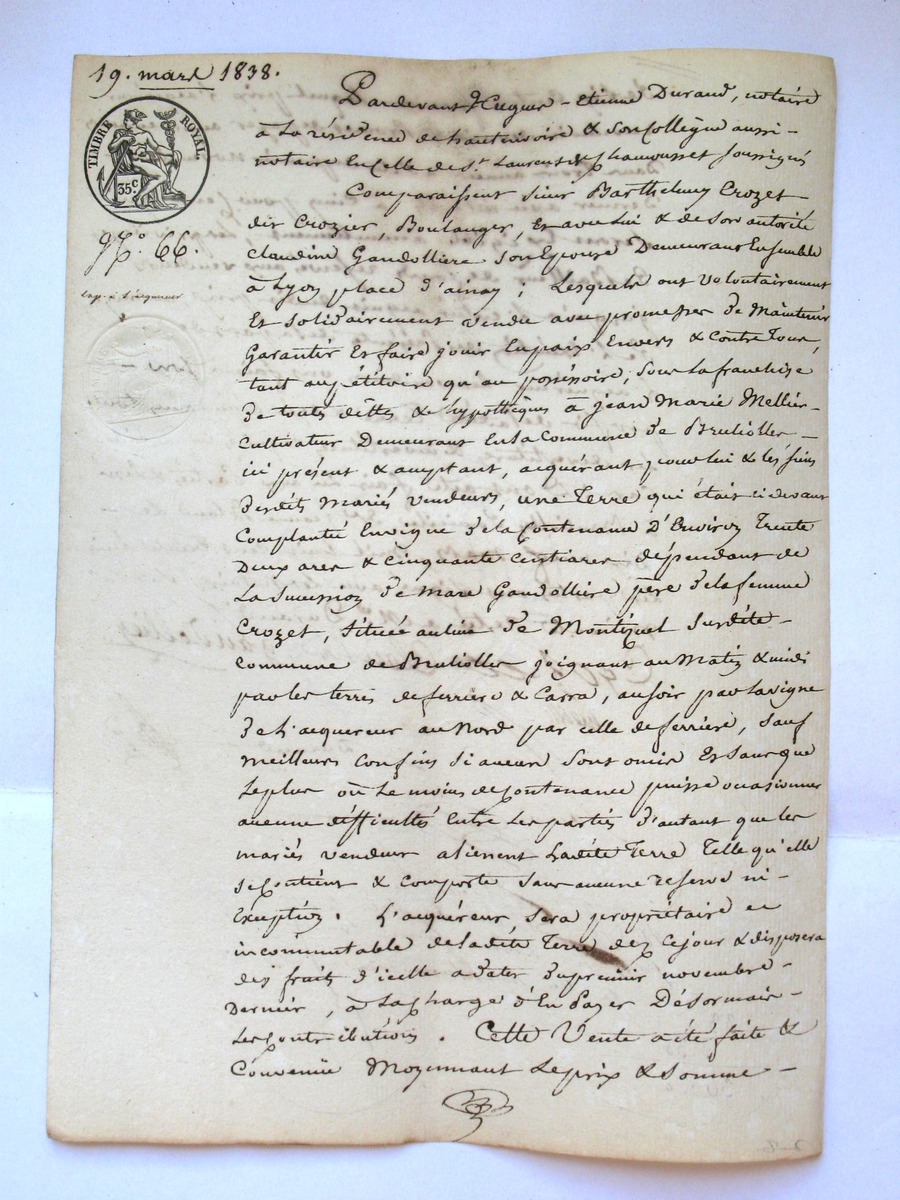 19. mars 1838.
TIMBRE ROYAL.
35c
No. 66.
Exp. à l'acquereur
Pardevant Hugues-Etienne Durand, notaire
à la résidence de hauterivoire & son collègue aussi
notaire en celle de St. Laurent de Chamousset soussignés
Comparaissent sieur Barthelmy Crozet
dit Crozier, Boulanger, et avec lui & de son autorité
Claudine Gaudolliere son Epouse Demeurant Ensemble
à Lyon place d'ainay ; Lesquels ont volontairement
et solidairement vendu avec promesses de Maintenir
Garantir et faire jouir en paix Envers & contre Tous,
tant au pétitoire qu'au posséssoire, sous la franchise
de toutes dettes & hypothèques à jean Marie Mellier
Cultivateur Demeurant En la Commune de Brulioller
ici présent & acceptant, acquérant pour lui & les siens
desdits mariés vendeurs, une Terre qui était ci devant
Complantée En vigne de la Contenance D'Environ Trente
Deux ares & cinquante centiares dépendant de
La succession de Marc Gaudolliere père de la femme
Crozet, située au lieu de sur dite
commune de Brulioller joignant au Matin & midi
par les terres de ferriere & Carra, au soir par la vigne
de l'acquereur au Nord par celle de ferriere, sauf
meilleurs confins si aucuns sont omis Et sans que
le plus où le moins de contenance puisse occasionner
aucune difficultés Entre les parties d'autant que les
mariés vendeurs alienent ladite Terre Telle qu'elle
se contient & comporte sans aucune reserve ni
Exception. L'acquéreur sera propriétaire
incommutable de ladite Terre dez ce jour & disposera
des fruits d'icelle a dater du premier novembre
Dernier, à la charge d'En Payer Désormais
Les contributions. Cette Vente a été faite &
Convenüe Moyennant le prix & somme